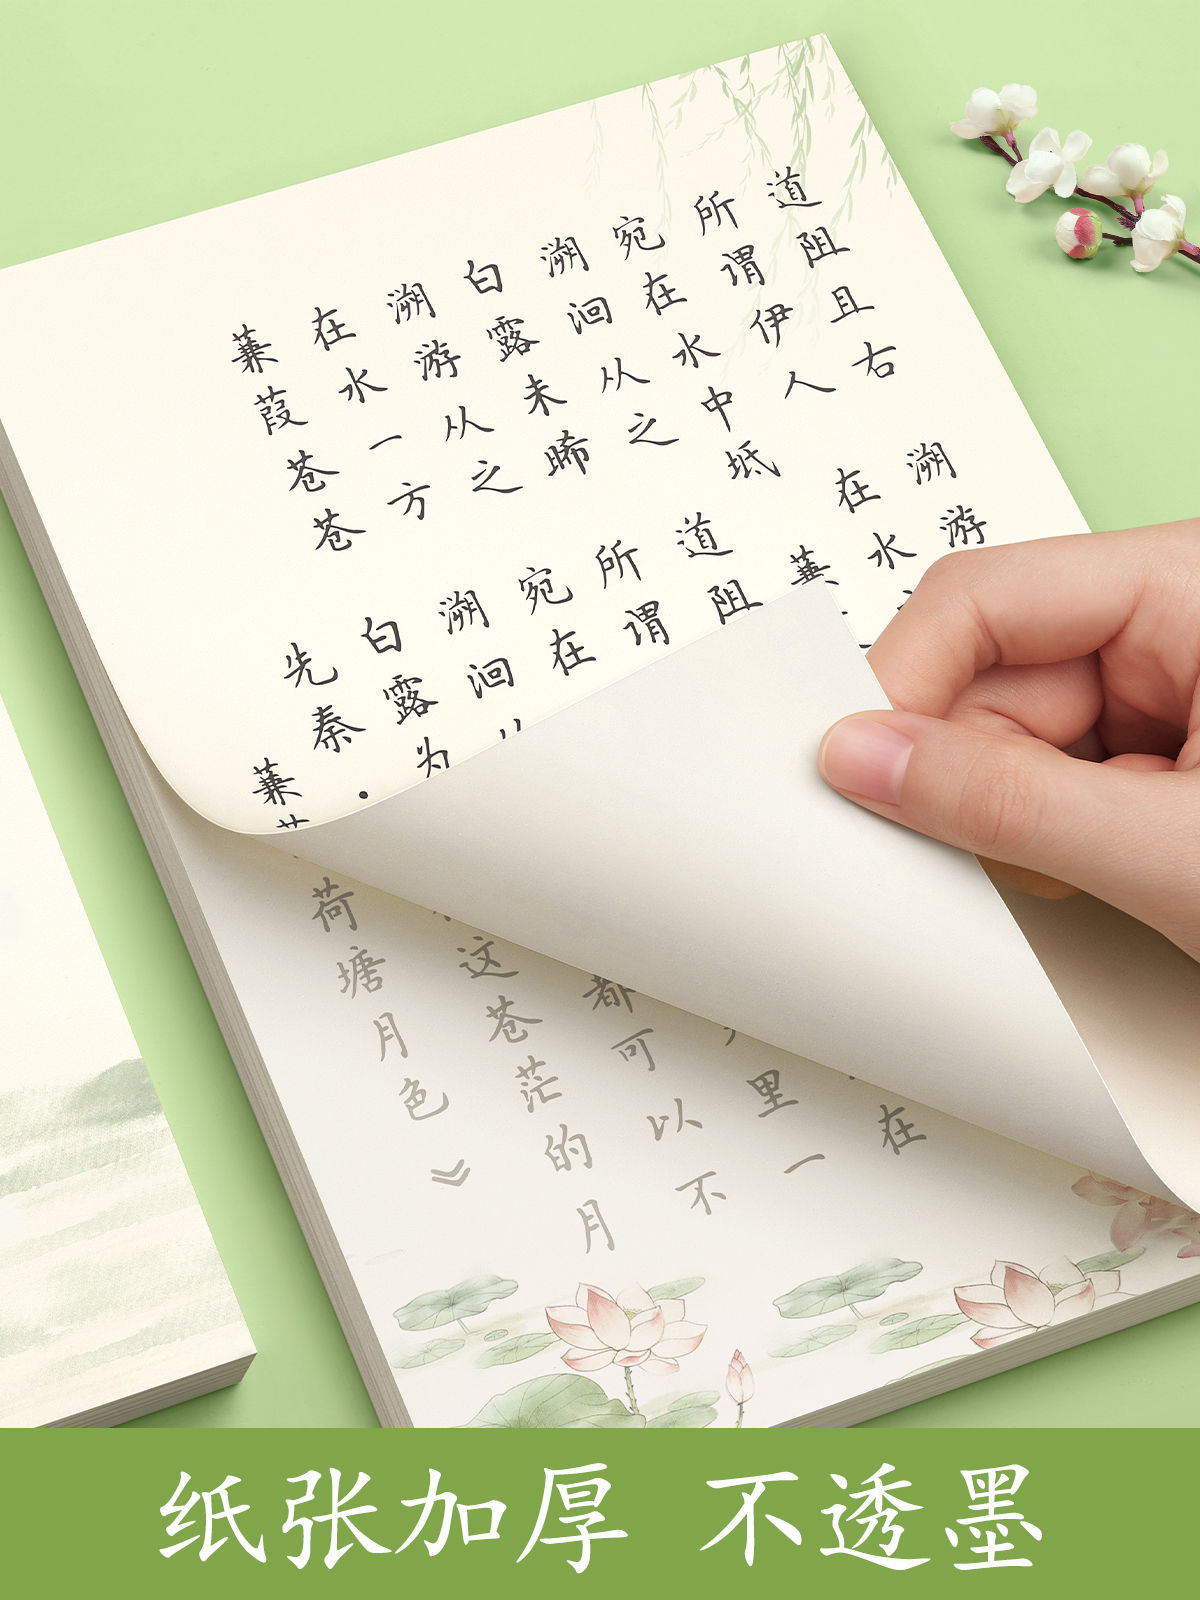 道阻且右
所谓伊人
宛在水中坻
溯洄从之
白露未晞
溯游从之
在水一方
蒹葭苍苍
溯游
在水
蒹
道阻
所谓
宛在
溯洄
白露为
先秦·
蒹
在
里一
都可以不
这苍茫的月
荷塘月色》
纸张加厚 不透墨